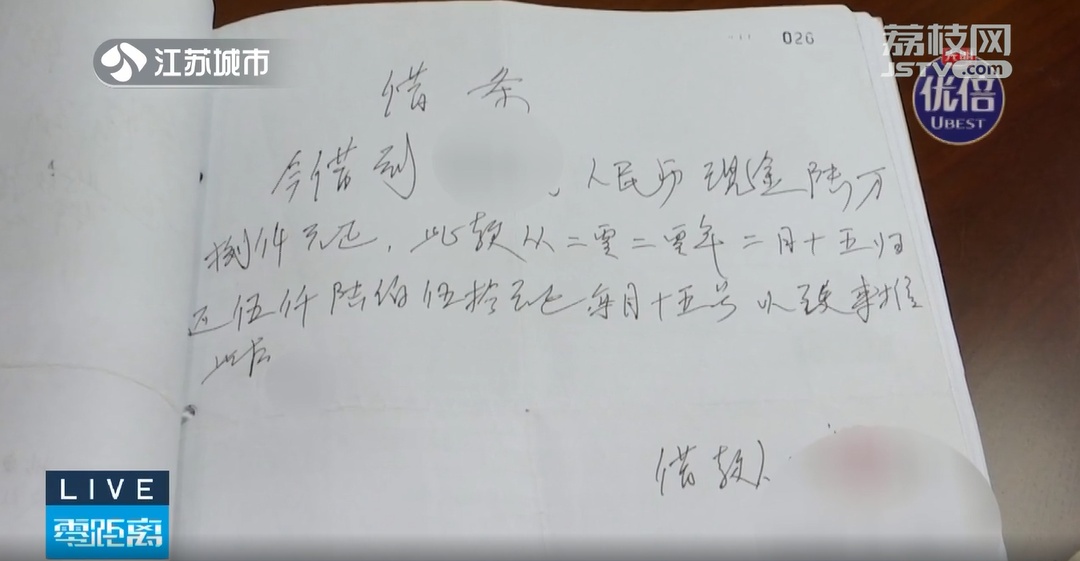 江苏城市
026
荔枝网
JSTV.com
光明
优倍
UBEST
借条
今借到 、人民币现金陆万
捌仟元正，此款从二零二零年二月十五归
还伍仟陆佰伍拾元正每月十五号以
此后
借款人
LIVE
零距离